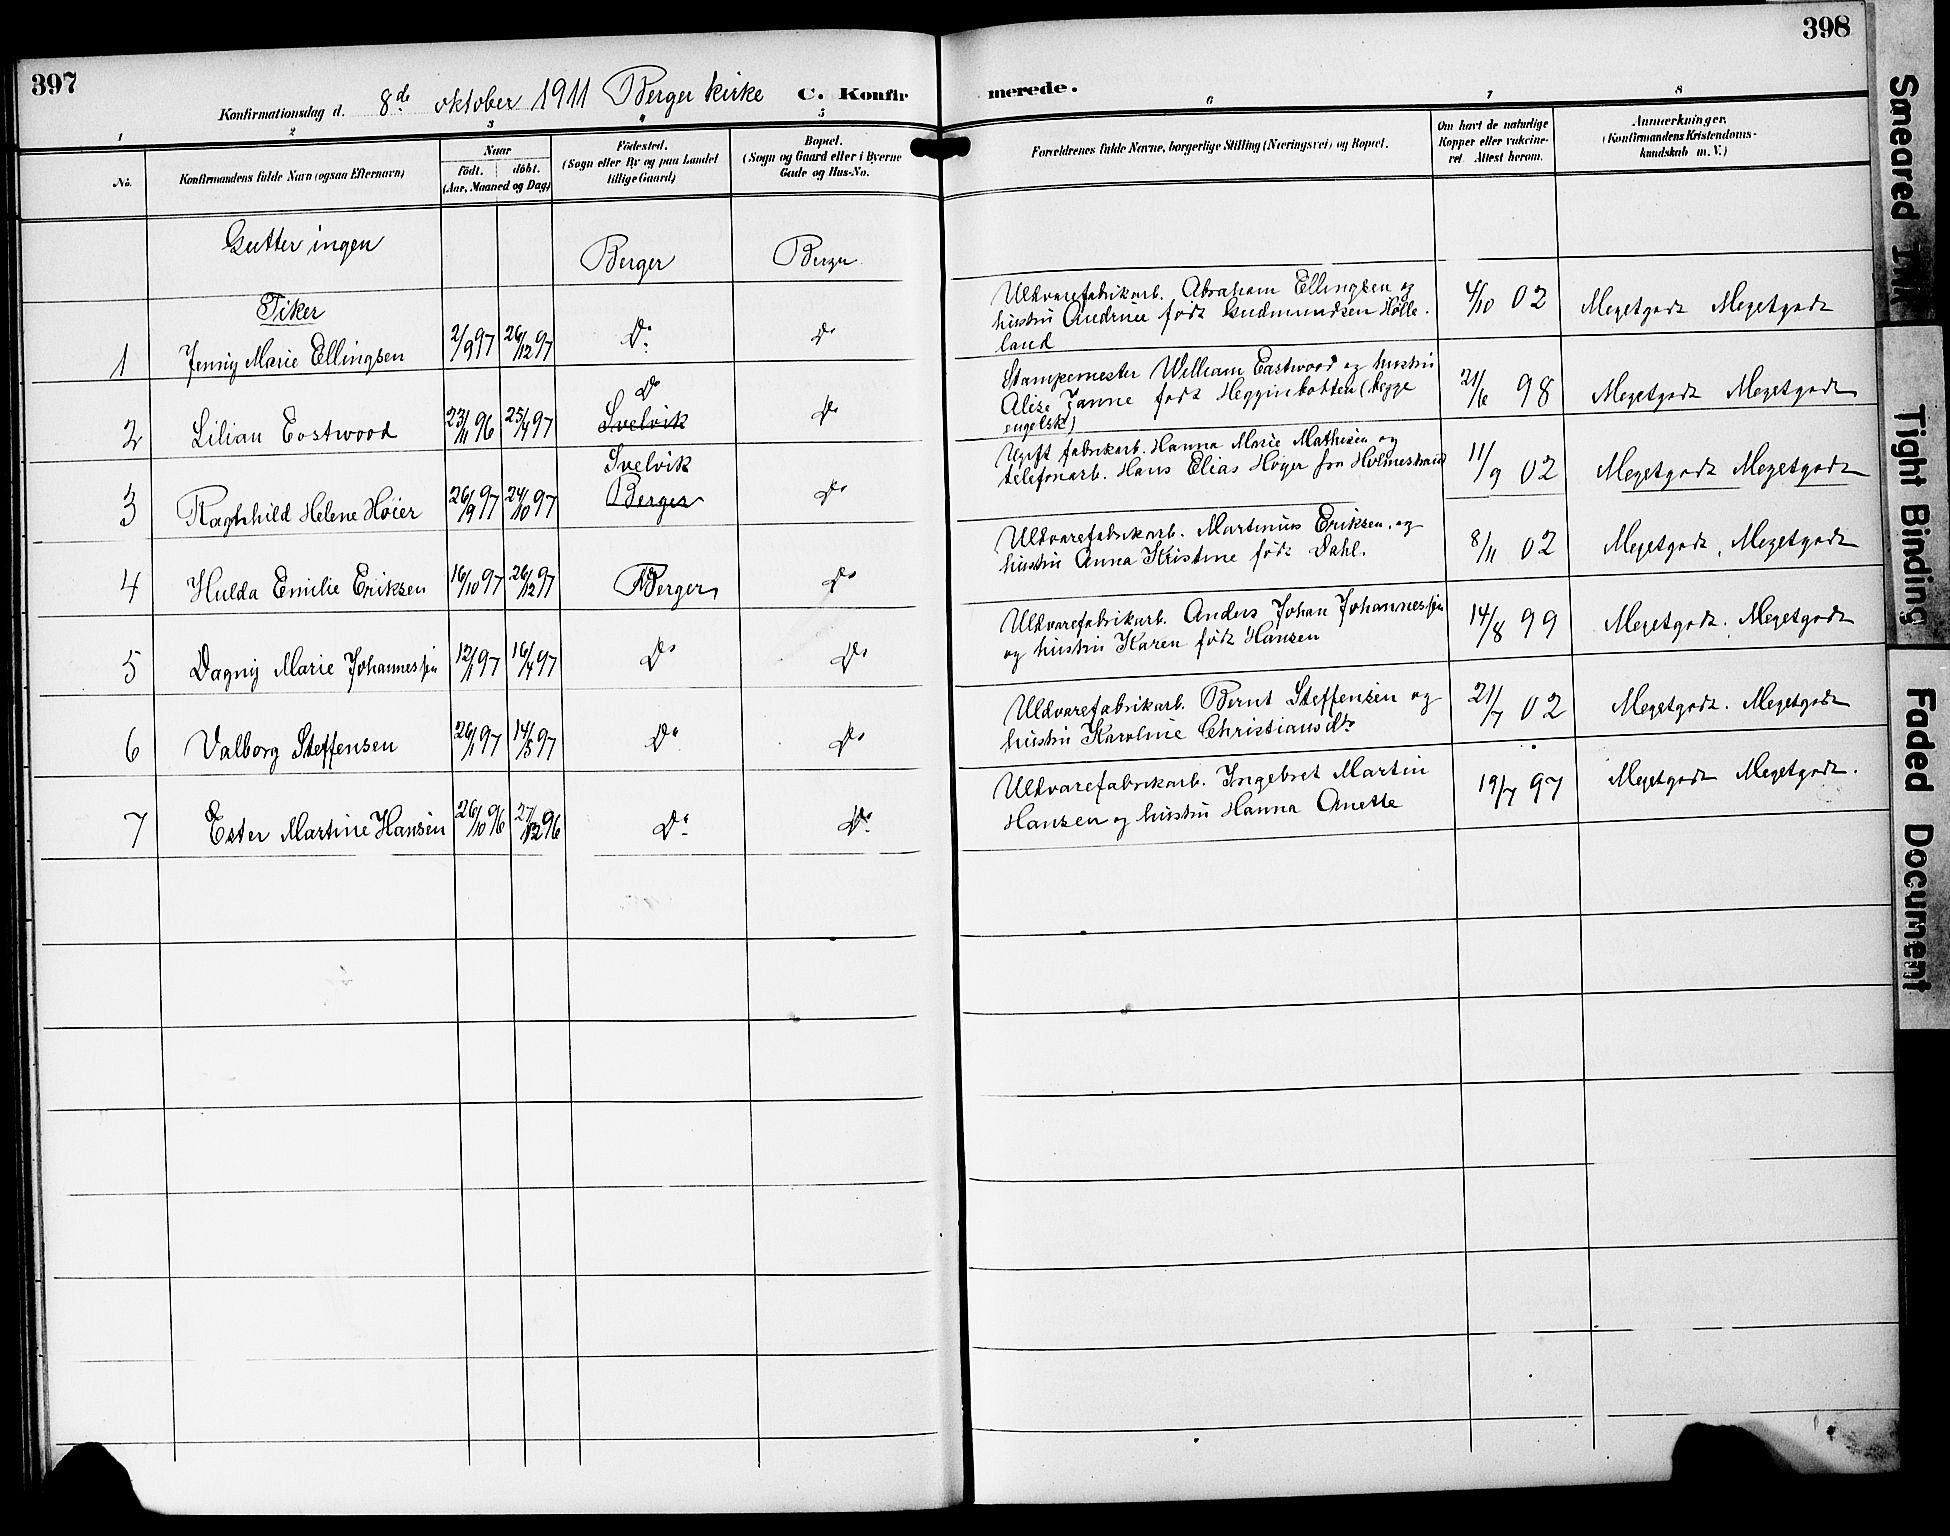 397
Konfirmationsdag d. 8de oktober 1911 Berger kirke C. Konfir
1 2 3 4 5
No.
Konfirmandens fulde Navn (ogsaa Efternavn)
Naar
født. døbt.
(Aar, Maaned og Dag)
Fødested.
(Sogn eller By og paa Landet
tillige Gaard)
Bopæl.
(Sogn og Gaard eller i Byerne
Gade og Hus-No.
Gutter ingen
Berger Berger
Piker
1 Jenny Marie Ellingsen 2/9 97 26/12 97 Do Do
Do
2 Lilian Eastwood 23/11 96 25/4 97 Svelvik Do
Svelvik
3 Raghhild Helene Høier 26/9 97 24/10 97 Berger Do
4 Hulda Emilie Eriksen 16/10 97 26/12 97 Berger Do
5 Dagny Marie Johannessen 12/1 97 16/4 97 Do Do
6 Valborg Steffensen 26/1 97 14/3 97 Do Do
7 Ester Martine Hansen 26/10 96 27/12 96 Do Do
398
merede.
6 7 8
Forældrenes fulde Navne, borgerlige Stilling (Næringsvei) og Bopæl.
Om havt de naturlige
Kopper eller vakcine-
ret. Attest herom.
Anmærkninger.
(Konfirmandens Kristendoms-
kundskab m. V.)
Uldvarefabrikarb. Abraham Ellingsen og
hustru Andrine født Gudmundsen Hølle-
land
4/10 02 Megetgodt Megetgodt
Stampemester William Eastwood og hustru
Alise Janne født Hegginbotten (begge
engelsk)
21/6 98 Megetgodt Megetgodt
Ugift fabrikarb. Hanna Marie Mathisen og
telefonarb. Hans Elias Høyer fra Holmestrand
11/9 02 Megetgodt Megetgodt
Uldvarefabrikarb. Martinius Eriksen og
hustru Anna Kristine født Dahl.
8/11 02 Megetgodt, Megetgodt
Uldvarefabrikarb. Anders Johan Johannessen
og hustru Karen født Hansen
14/8 99 Megetgodt. Megetgodt
Uldvarefabrikarb. Bernt Steffensen og
hustru Karoline Christiansdtr
21/7 02 Megetgodt. Megetgodt
Uldvarefabrikarb. Ingebret Martin
Hansen og hustru Hanna Anette
19/7 97 Megetgodt Megetgodt.
Smeared Ink
Tight Binding
Faded Document